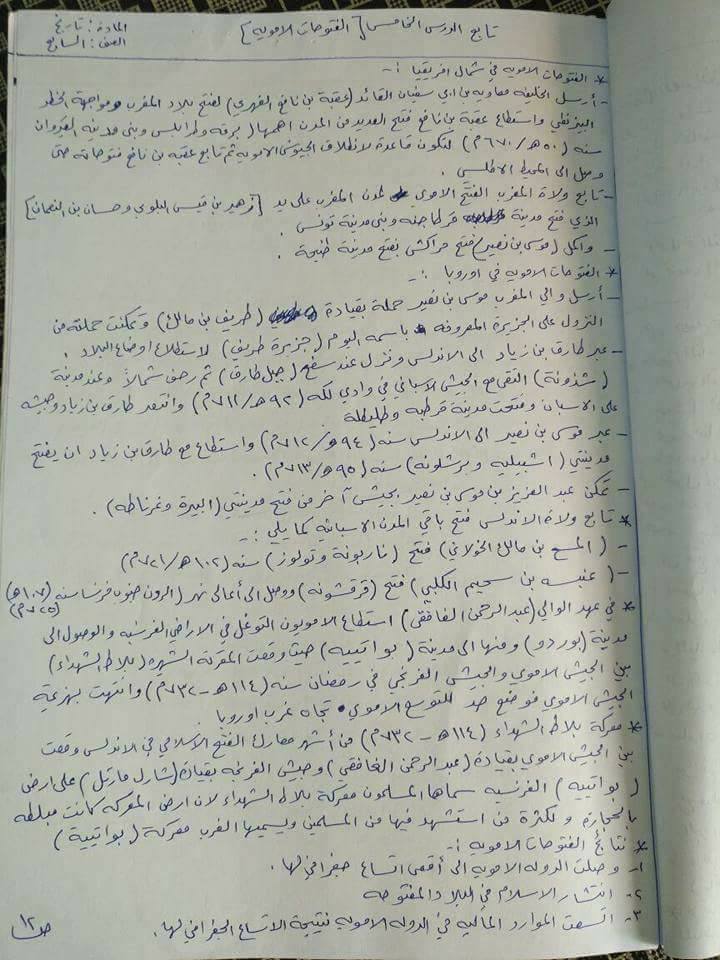 المادة : تاريخ
الصف : السابع
تابع الدرس الخامس [الفتوحات الاموية]
* الفتوحات الاموية في شمال افريقيا :-
- أرسل الخليفه معاويه بن ابي سفيان القائد (عقبة بن نافع الفهري) لفتح بلاد المغرب ومواجهة الخطر
البيزنطي واستطاع عقبة بن نافع فتح العديد من المدن اهمها (برقه وطرابلس وبنى مدينة القيروان
سنه (٥٠هـ/٦٧٠م) لتكون قاعدة لانطلاق الجيوش الامويه ثم تابع عقبه بن نافع فتوحاته حتى
وصل الى المحيط الاطلسي .
- تابع ولاة المغرب الفتح الاموي لمدن المغرب على يد [زهير بن قيس البلوي وحسان بن النعمان]
الذي فتح مدينة قرطاجنه وبنى مدينة تونس .
- واكمل (موسى بن نصير) فتح مراكش بفتح مدينة طنجة .
* الفتوحات الامويه في اوروبا :-
- أرسل والي المغرب موسى بن نصير حملة بقيادة (طريف بن مالك) وتمكنت حملته من
النزول على الجزيرة المعروفة باسمه اليوم (جزيرة طريف) لاستطلاع اوضاع البلاد .
- عبر طارق بن زياد الى الاندلس ونزل عند سفح (جبل طارق) ثم زحف شمالاً وعند مدينة
(شذونة) التقى مع الجيش الاسباني في وادي لكه (٩٢هـ/٧١١م) وانتصر طارق بن زياد وجيشه
على الاسبان وفتحت مدينة قرطبه وطليطلة
- عبر موسى بن نصير الى الاندلس سنه (٩٤هـ/٧١٢م) واستطاع مع طارق بن زياد ان يفتح
مدينتي (اشبيليه وبرشلونه) سنه (٩٥هـ/٧١٣م).
- تمكن عبد العزيز بن موسى بن نصير بجيش آخر من فتح مدينتي (البيرة وغرناطه).
* تابع ولاة الاندلس فتح باقي المدن الاسبانيه كما يلي :-
- (السمح بن مالك الخولاني) فتح (ناربونة وتولوز) سنه (١٠٢هـ/٧٢١م)
- (عنبسه بن سحيم الكلبي) فتح (قرقشونه) ووصل الى أعالي نهر (الرون جنوب فرنسا سنه (١٠٧هـ)
(٧٢٥م)
* في عهد الوالي (عبد الرحمن الغافقي) استطاع الامويون التوغل في الاراضي الفرنسيه والوصول الى
مدينة (بوردو) ومنها الى مدينة (بواتييه) حيث وقعت المعركة الشهيره (بلاط الشهداء)
بين الجيش الاموي والجيش الفرنجي في رمضان سنه (١١٤هـ-٧٣٢م) وانتهت بهزيمة
الجيش الاموي فوضع حد للتوسع الاموي تجاه غرب اوروبا .
* معركة بلاط الشهداء (١١٤هـ-٧٣٢م) من أشهر معارك الفتح الاسلامي في الاندلس وقعت
بين الجيش الاموي بقيادة (عبد الرحمن الغافقي) وجيش الفرنجه بقيادة (شارل مارتل) على ارض
(بواتييه) الفرنسيه سماها المسلمون معركة بلاط الشهداء لان ارض المعركه كانت مبلطه
بالحجارة ولكثرة من استشهد فيها من المسلمين ويسميها الغرب معركة (بواتيية)
* نتائج الفتوحات الامويه :-
١- وصلت الدوله الامويه الى أقصى اتساع جغرافي لها .
٢- انتشار الاسلام في البلاد المفتوحه
٣- اتسعت الموارد الماليه في الدوله الامويه نتيجة الاتساع الجغرافي لها .
ص١٢